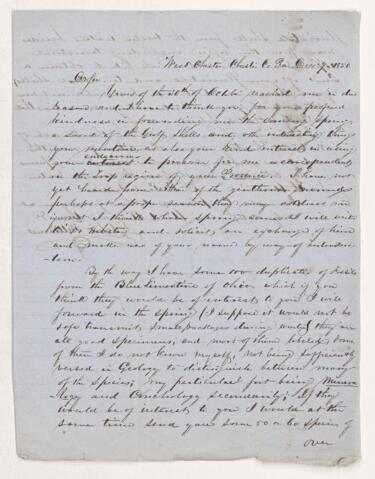 West Chester Chest. Co Pa Dec 7 1850
Yours of the 30th of Octbr reached me in due
season, and I have to thank you for your
kindness in forwarding me the
a part of the Shells and other interesting things
you mention, as also your kind interest in
your endeavors to procure for me a correspondent
in the regions of your Province. I have not
yet heard from of the gentlemen
perhaps at a season they may address me
I think when spring comes I will write
to and solicit an exchange of him
and make use of your name by way of introduc-
tion.
By the way I have some 100 duplicates of fossils
from the Blue Limestone of Ohio, which if you
think they would be of interest to you I will
forward in the spring (I suppose it would not be
safe to transmit packages during winter) they are
all good specimens, and most of them labeled, some
of them I do not know myself, not being sufficiently
versed in Geology to distinguish between many
of the species; my particular fort being Minera-
logy and Conchology secondarily; If they
would be of interest to you I would at the
same time send you some 50 or 60 species of
over